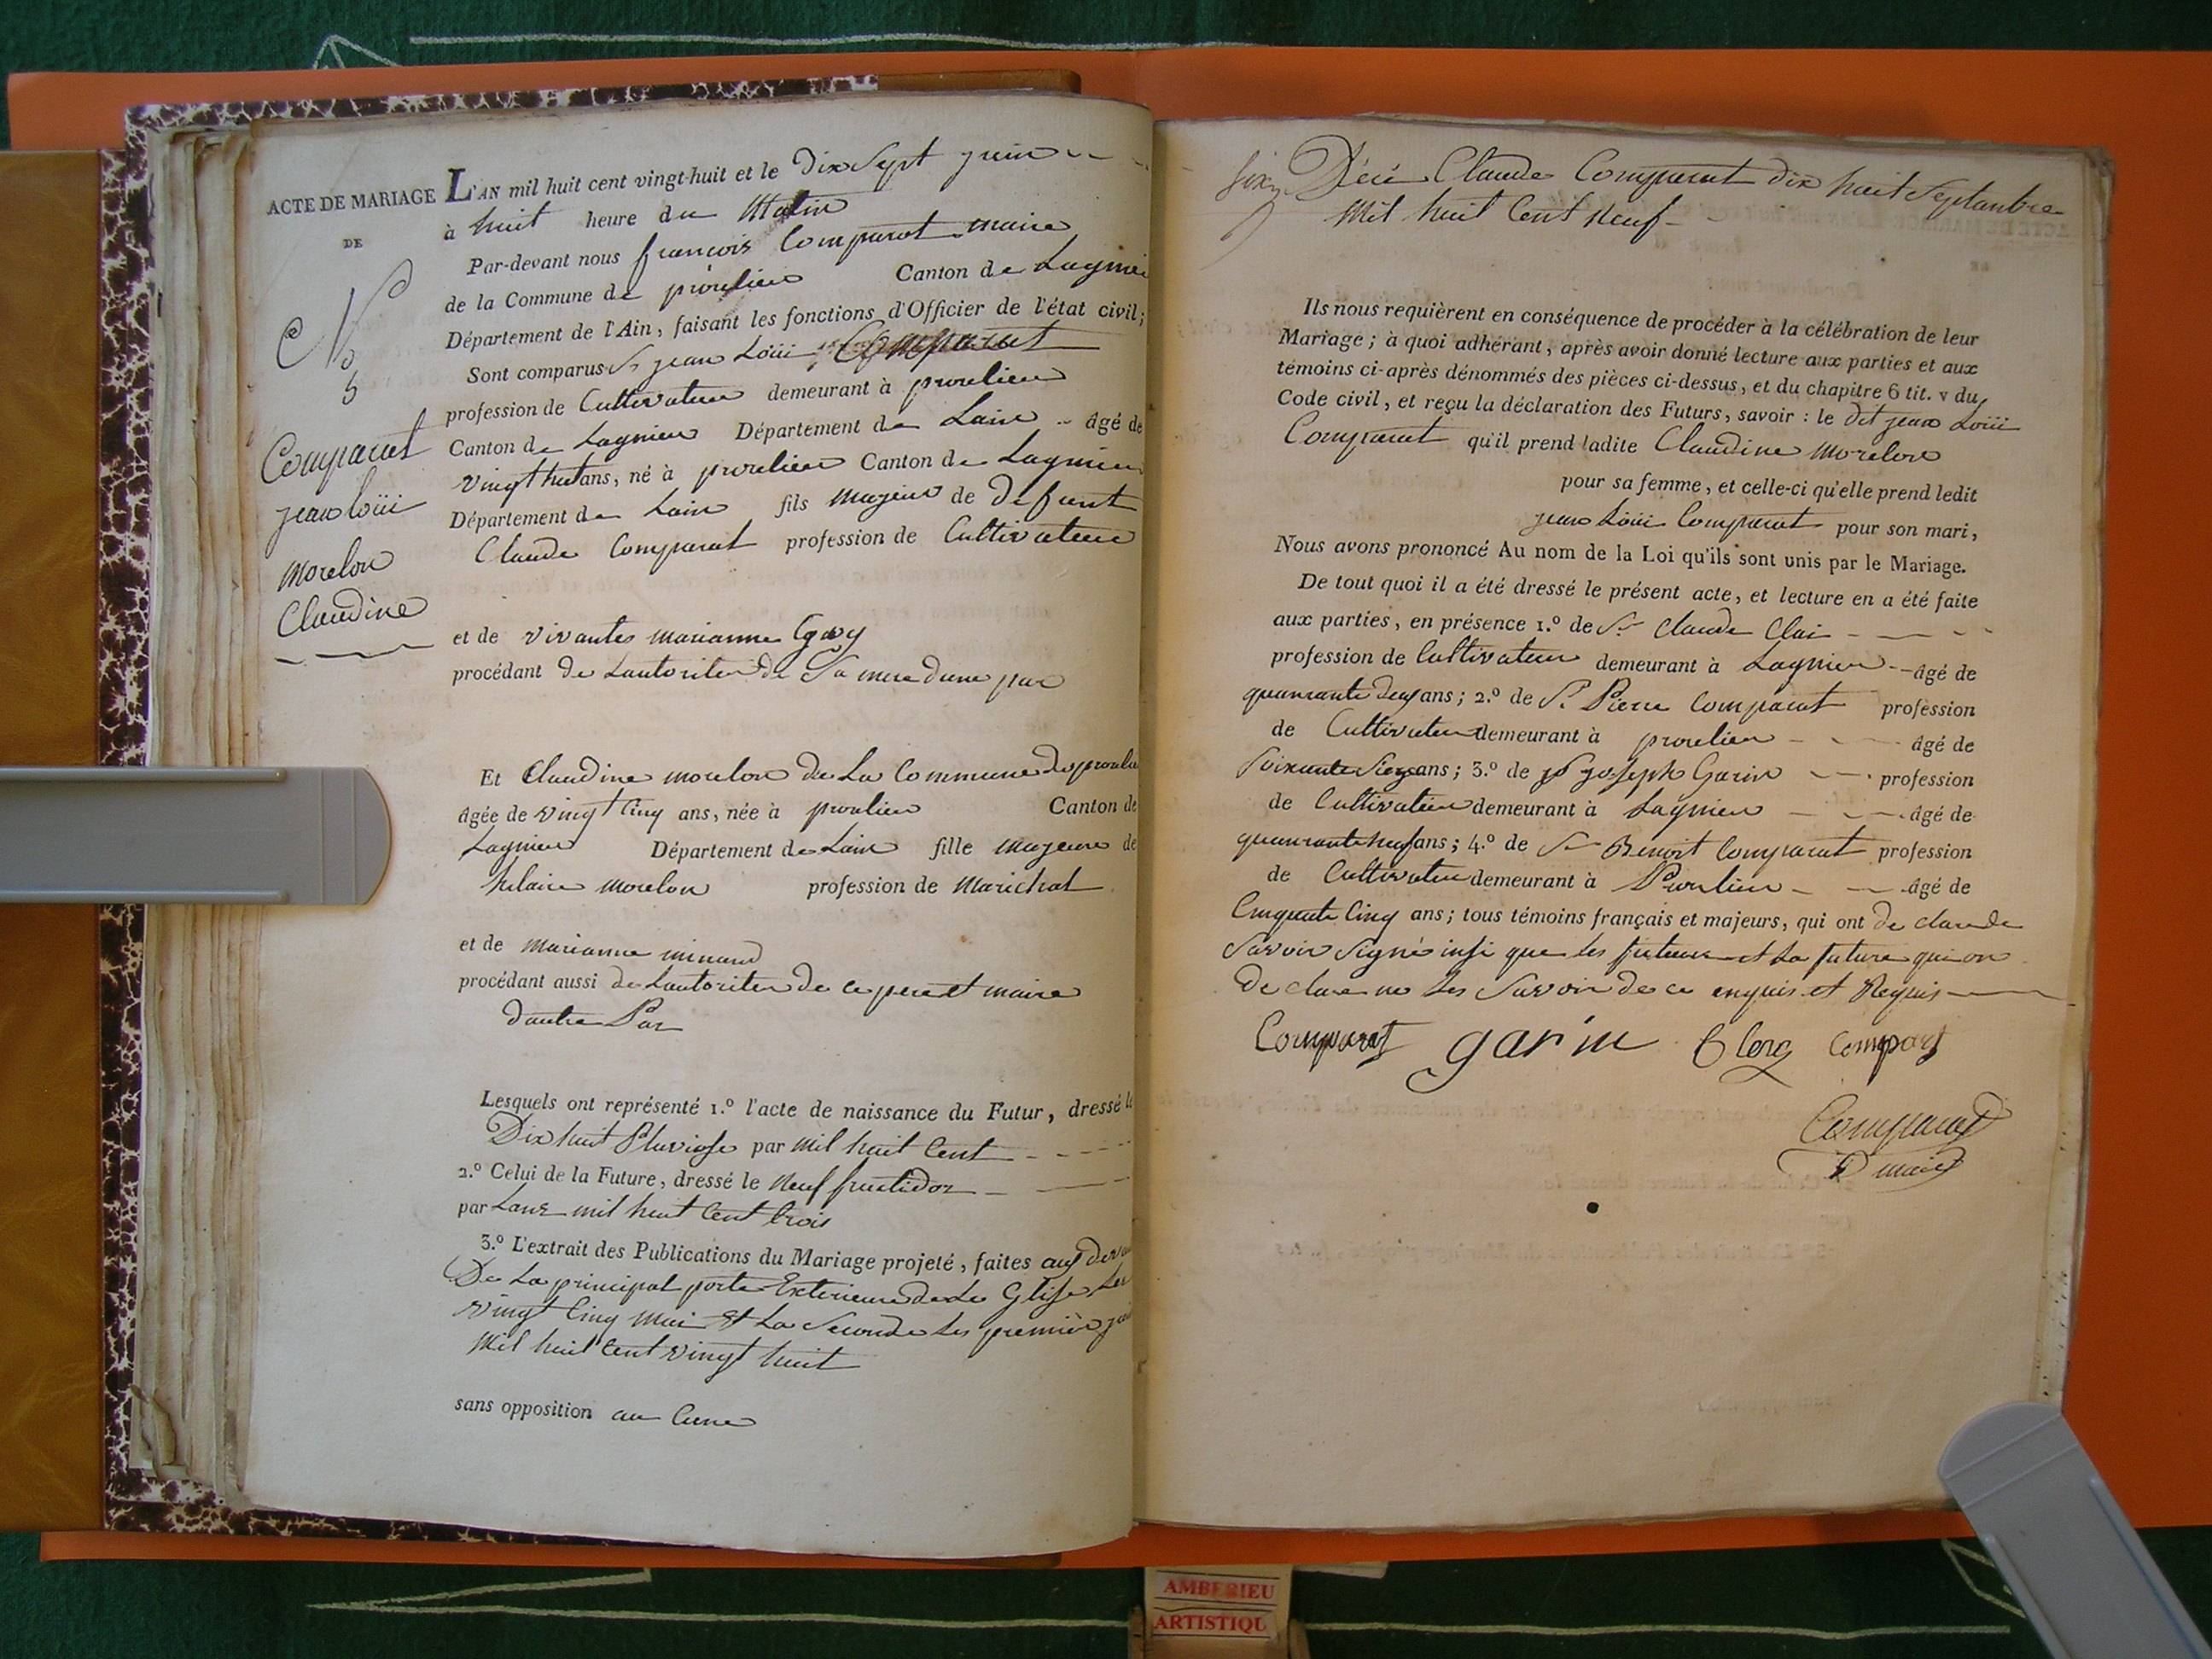 ACTE DE MARIAGE
DE
N
5
Comparat
jean loüi
morelon
Claudine
L'AN mil huit cent vingt-huit et le Dix Sept juin
à huit heure du Matin
Par-devant nous françois Comparat maire
de la Commune de proulieu Canton de Lagnieu
Département de l'Ain, faisant les fonctions d'Officier de l'état civil;
Sont comparus Sr jean Loüi Comparat
profession de Cultivateur demeurant à proulieu
Canton de Lagnieu Département de Lain âgé de
vingt huit ans, né à proulieu Canton de Lagnieu
Département de Lain fils majeur de Defunt
Claude Comparat profession de Cultivateur
et de vivantes marianne
procédant de Lautoriter de Sa mere dune par
Et Claudine morelon de La Commune de proulieu
âgée de vingt Cinq ans, née à proulieu Canton de
Lagnieu Département de Lain fille majeure de
hilaire morelon profession de Marichal
et de marianne minand
procédant aussi de Lautoriter de ce pere et maire
dautre Par
Lesquels ont représenté 1.º l'acte de naissance du Futur, dressé le
Dix huit Pluviose par mil huit Cent
2.º Celui de la Future, dressé le neuf fructidor
par Lane mil huit Cent trois
3.º L'extrait des Publications du Mariage projeté, faites aux
De La principal porte Exterieure de Le Glise Les
vingt Cinq mai Et La Seconde Les première
Mil huit Cent vingt huit
sans opposition au Cune
Claude Comparat dix huit Septanbre
Mil huit Cent Neuf
Ils nous requièrent en conséquence de procéder à la célébration de leur
Mariage; à quoi adhérant, après avoir donné lecture aux parties et aux
témoins ci-après dénommés des pièces ci-dessus, et du chapitre 6 tit. v du
Code civil, et reçu la déclaration des Futurs, savoir: le dit jean Loüi
Comparat qu'il prend ladite Claudine morelon
pour sa femme, et celle-ci qu'elle prend ledit
jean Loüi Comparat pour son mari,
Nous avons prononcé Au nom de la Loi qu'ils sont unis par le Mariage.
De tout quoi il a été dressé le présent acte, et lecture en a été faite
aux parties, en présence 1.º de Sr Claude Clai
profession de Cultivateur demeurant à Lagnieu âgé de
quanrante deux ans; 2.º de Sr Pierre Comparat profession
de Cultivateur demeurant à proulieu âgé de
Soixante Seize ans; 3.º de joseph Garin profession
de Cultivateur demeurant à Lagnieu âgé de
quanrante neuf ans; 4.º de Sr Benoit Comparat profession
de Cultivateur demeurant à Proulieu âgé de
Cinquante Cinq ans; tous témoins français et majeurs, qui ont de clare de
Savoir Signé insi que les futeur et La future qui on
De clare ne Les Savoir de ce enquis et Requis
Comparat garin Clerg
Comparat
maire
AMBERIEU
ARTISTIQU